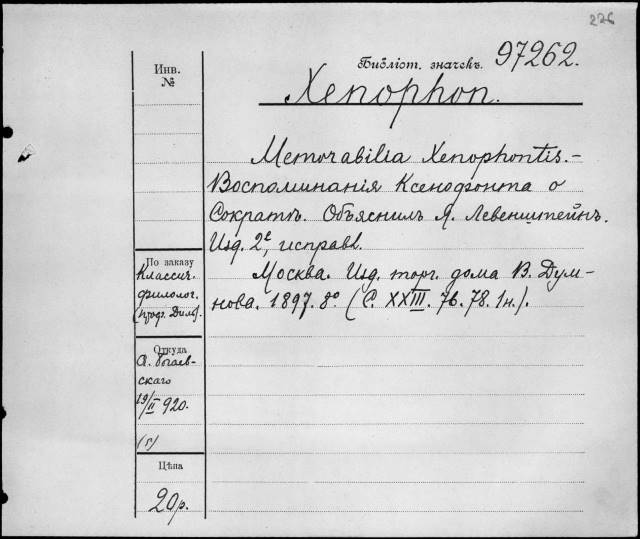 226
Инв.
№
Библіот. значекъ. 97262.
Xenophon.
Memorabilia Xenophontis. –
Воспоминанія Ксенофонта о
Сократѣ. Объяснилъ Я. Левенштейнъ.
Изд. 2е, исправл.
Москва. Изд. торг. дома В. Дум-
нова. 1897. 8о (С. XXIII. 76. 78. 1н.).
По заказу
Классич.
филолог.
Откуда
19/II 920.
(г)
Цѣна
20р.